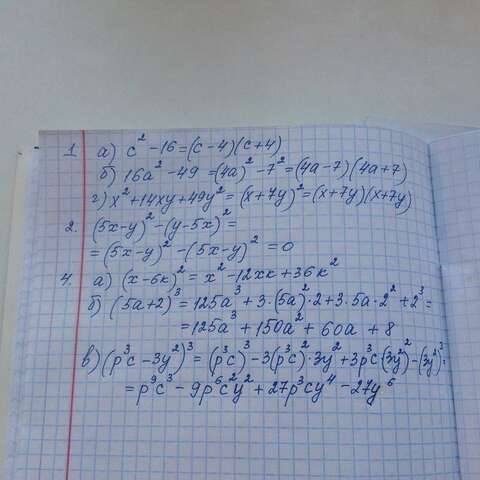 1. а) c² - 16 = (c - 4)(c + 4)
б) 16a² - 49 = (4a)² - 7² = (4a - 7)(4a + 7)
г) x² + 14xy + 49y² = (x + 7y)² = (x + 7y)(x + 7y)
2. (5x - y)² - (y - 5x)² =
= (5x - y)² - (5x - y)² = 0
4. а) (x - 6к)² = x² - 12xк + 36к²
б) (5a + 2)³ = 125a³ + 3·(5a)²·2 + 3·5a·2² + 2³ =
= 125a³ + 150a² + 60a + 8
в) (p³c - 3y²)³ = (p³c)³ - 3(p³c)²·3y² + 3p³c·(3y²)² - (3y²)³ =
= p⁹c³ - 9p⁶c²y² + 27p³cy⁴ - 27y⁶